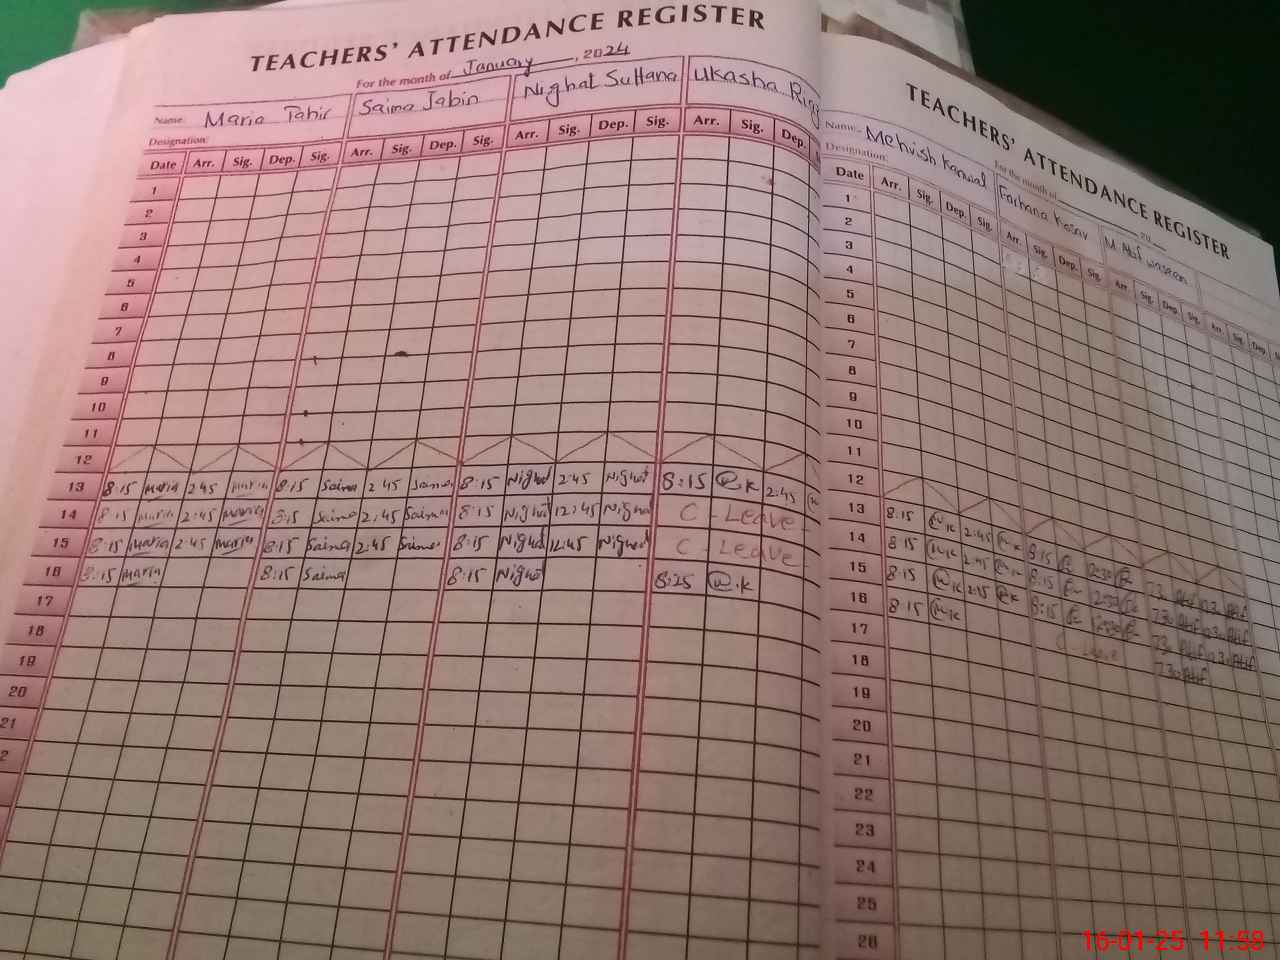 TEACHERS' ATTENDANCE REGISTER
For the month of January, 2024
Name: Maria Tahir Saima Jabin Nighat Sultana Ukasha
Designation:
Date Arr. Sig. Dep. Sig. Arr. Sig. Dep. Sig. Arr. Sig. Dep. Sig. Arr. Sig. Dep.
1
2
3
4
5
6
7
8
9
10
11
12
13 8:15 Maria 2:45 Maria 8:15 Saima 2:45 Saima 8:15 Nighat 2:45 Nighat 8:15 @.K 2:45
14 8:15 Maria 2:45 Maria 8:15 Saima 2:45 Saima 8:15 Nighat 12:45 Nighat C-Leave
15 8:15 Maria 2:45 Maria 8:15 Saima 2:45 Saima 8:15 Nighat 12:45 Nighat C-Leave
16 8:15 Maria 8:15 Saima 8:15 Nighat 8:25 @.K
17
18
19
20
21
2
TEACHERS' ATTENDANCE REGISTER
For the month of 20
Name: Mehvish Kanwal Farhana Kosar M Atif Waseem
Designation:
Date Arr. Sig. Dep. Sig. Arr. Sig. Dep. Sig. Arr. Sig. Dep. Sig. Arr. Sig. Dep.
1
2
3
4
5
6
7
8
9
10
11
12
13 8:15 @K 2:45 @K 8:15 12:30 Atif Atif
14 8:15 @K 2:45 @K 8:15 12:30 730 Atif Atif
15 8:15 @K 2:15 @K 8:15 12:30 Atif Atif
16 8:15 @K C-Leave 730 Atif
17
18
19
20
21
22
23
24
25
26
16-01-25 11:58